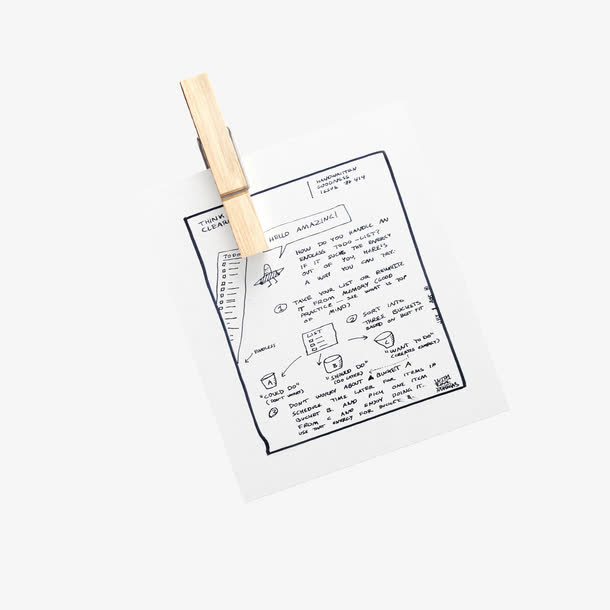 THINK
CLEAR
HANDWRITTEN
GOODNESS
ISSUE № 414
HELLO AMAZING!
TODO
HOW DO YOU HANDLE AN
ENDLESS TODO-LIST?
IF IT SUCKS THE ENERGY
OUT OF YOU, HERE'S
A WAY YOU CAN TRY.
① TAKE YOUR LIST OR REWRITE
IT FROM MEMORY (GOOD
PRACTICE — SEE WHAT IS TOP
OF MIND)
② SORT INTO
THREE BUCKETS
BASED ON BEST FIT
ENDLESS
LIST
A
B
C
"COULD DO"
(DON'T WORRY)
"SHOULD DO"
(DO LATER)
"WANT TO DO"
(CREATES ENERGY)
③ DON'T WORRY ABOUT BUCKET A
SCHEDULE TIME LATER FOR ITEMS IN
BUCKET B. AND PICK ONE ITEM
FROM C AND ENJOY DOING IT.
USE THAT ENERGY FOR BUCKET B.